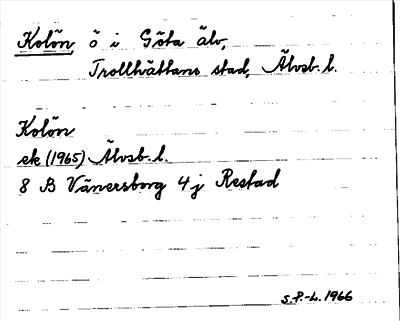 Kolön, ö i Göta älv,
Trollhättans stad, Älvsb. l.
Kolön
ek (1965) Älvsb. l.
8 B Vänersborg 4 j Restad
S.P.-L. 1966